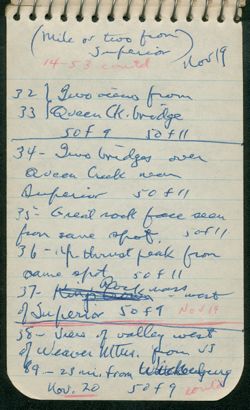 (Mile or two from
Superior)
14-53 contd Nov 19
32 } Two views from
33 } Queen Ck. bridge
50 f 9 50 f 11
34 - Two bridges over
Queen Creek near
Superior 50 f 11
35 - Great rock face seen
from same spot. 50 f 11
36 - up thrust peak from
same spot 50 f 11
37 - Rock mass west
of Superior 50 f 9 Nov 19
38 - View of valley west
of Weaver Mtns. from US
89 - 25 mi. from Wickenburg
Nov. 20 50 f 9 contd